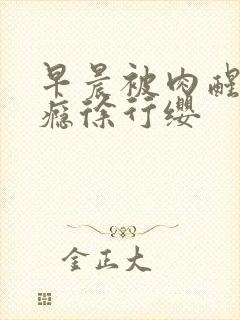 早晨被肉醒
瘾徐行缨
金正大